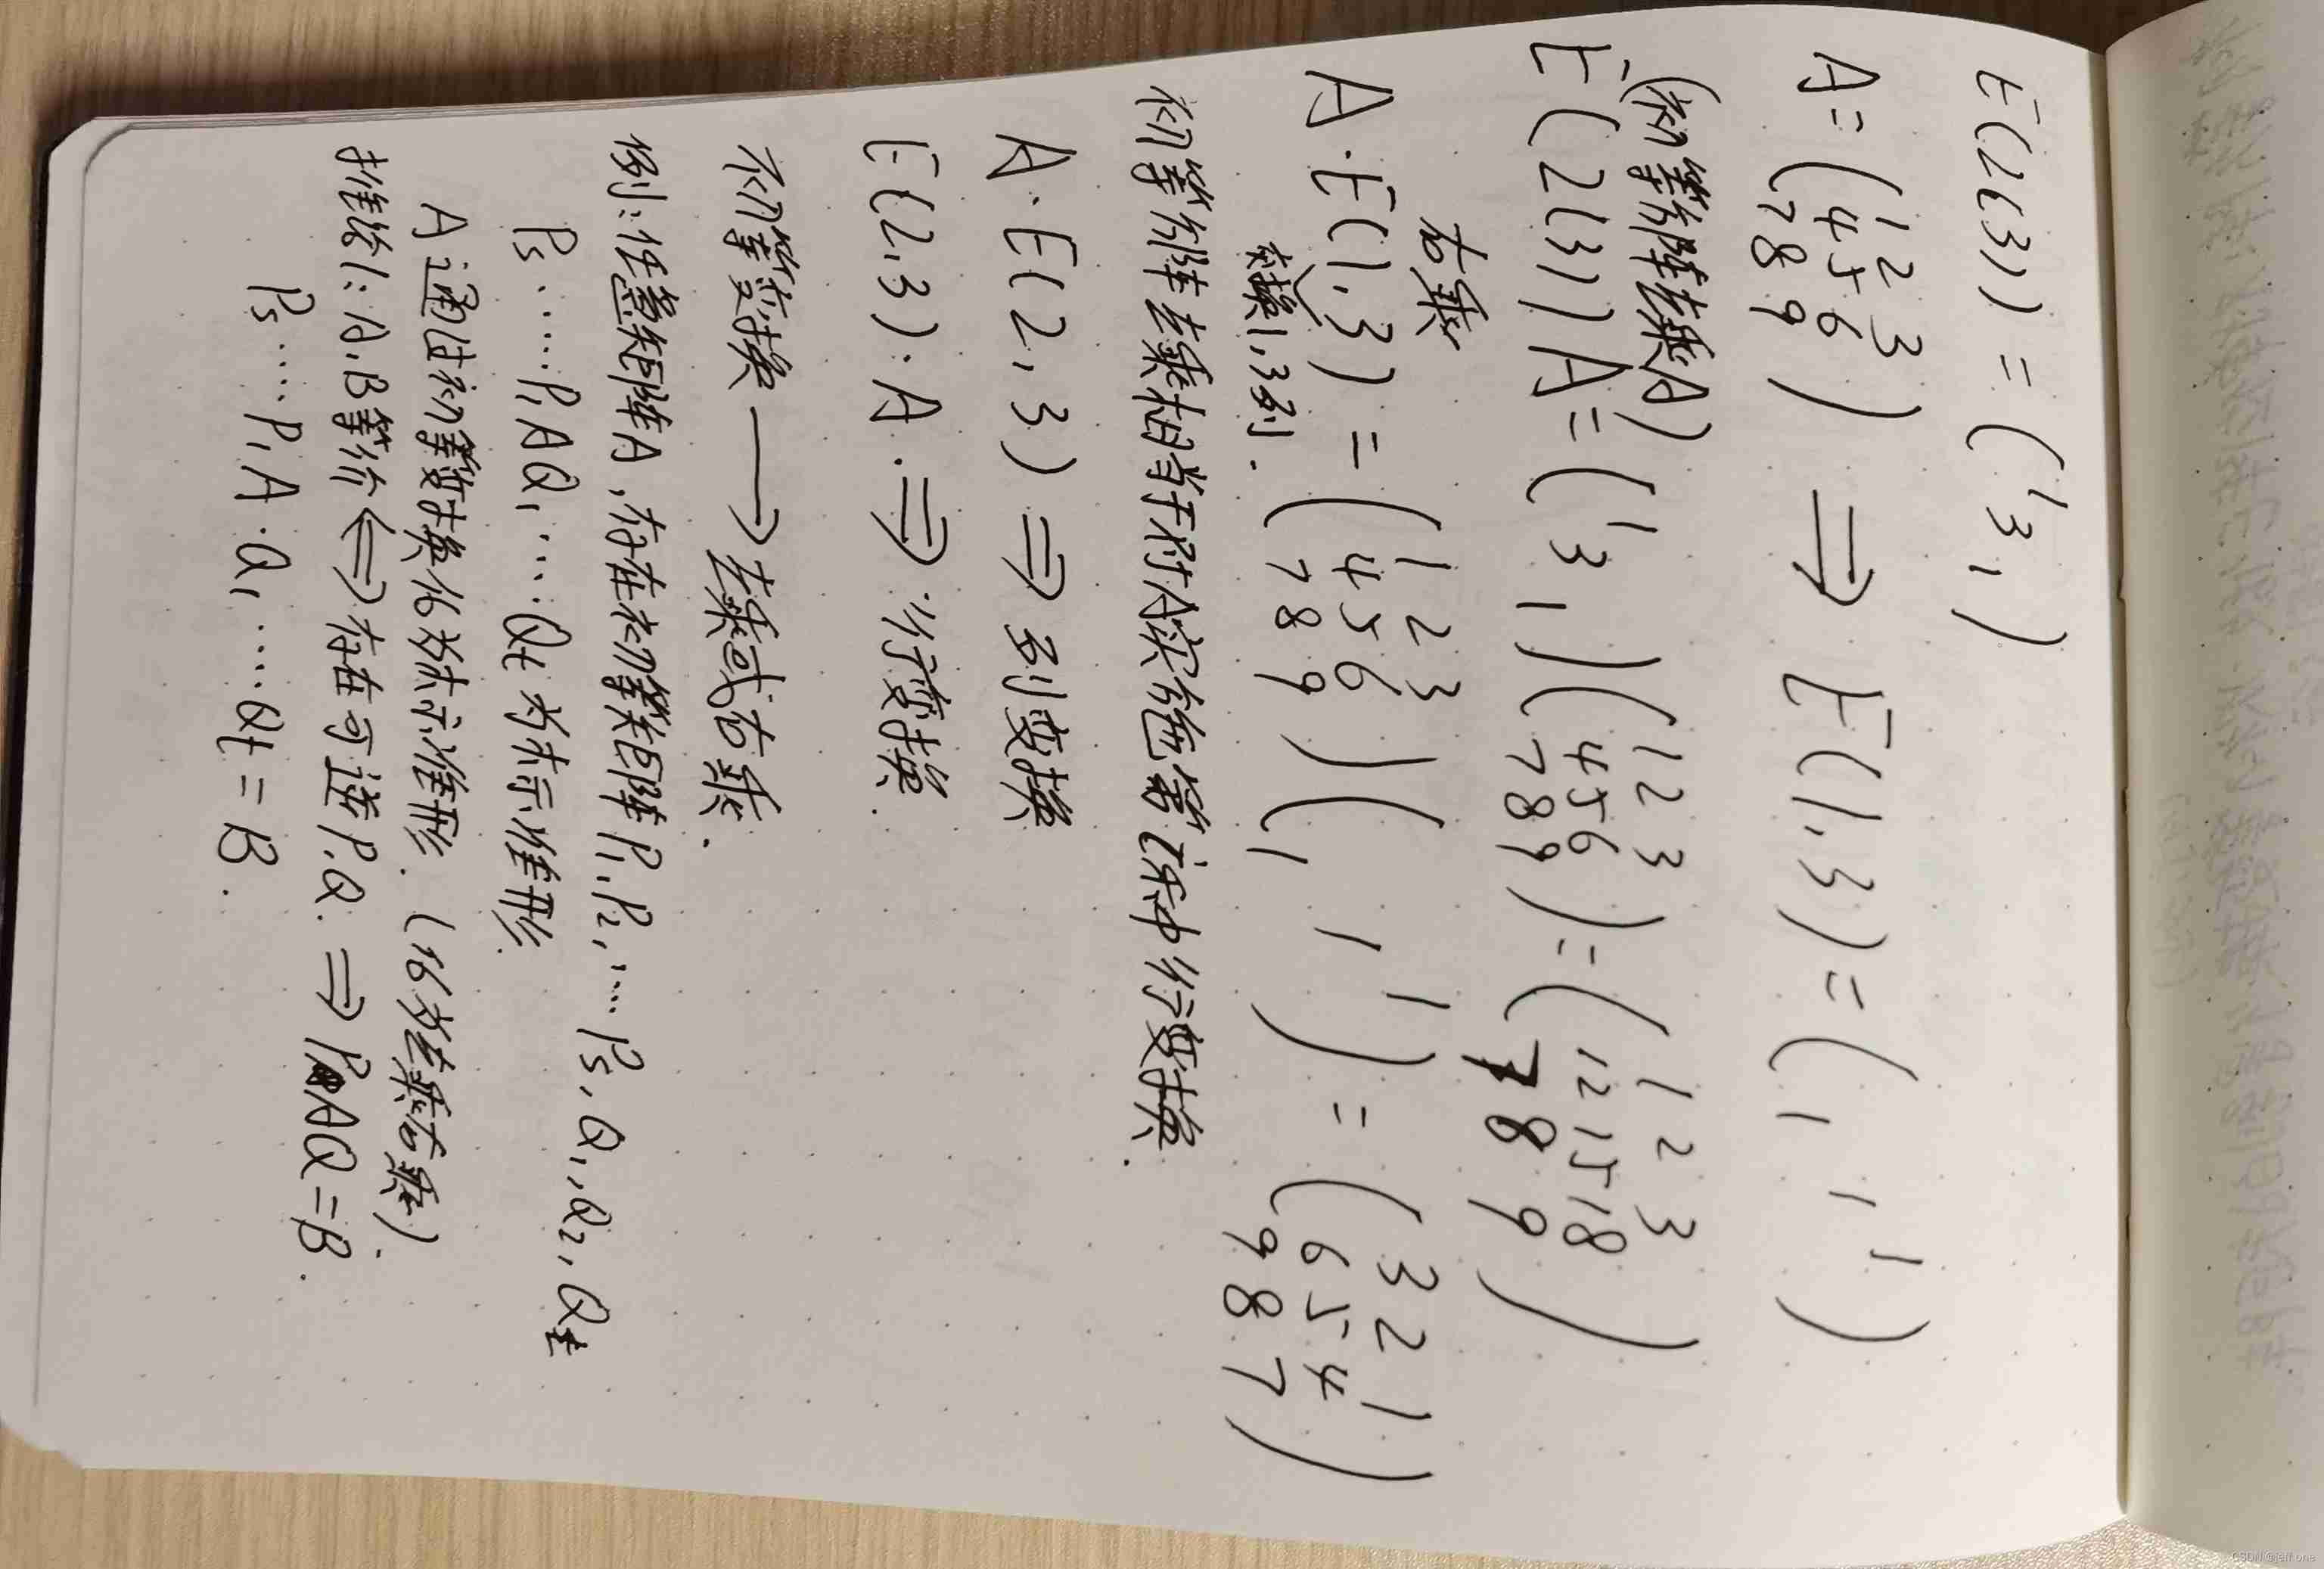 E(2(3)) = ( 1 3 1 )
A = ( 1 2 3 4 5 6 7 8 9 ) ⇒ E(1,3) = ( 1 1 1 )
(初等矩阵左乘A)
E(2(3)) A = ( 1 3 1 ) ( 1 2 3 4 5 6 7 8 9 ) = ( 1 2 3 12 15 18 7 8 9 )
右乘
A·E(1,3) = ( 1 2 3 4 5 6 7 8 9 ) ( 1 1 1 ) = ( 3 2 1 6 5 4 9 8 7 )
交换1,3列.
初等矩阵左乘相当于对A实施第 种行变换.
A·E(2,3) ⇒ 列变换
E(2,3)·A ⇒ 行变换.
初等变换 → 左乘或右乘.
例:任意矩阵A,存在初等矩阵P1,P2,……Ps,Q1,Q2,Qt
Ps……P1AQ1……Qt为标准形.
A通过初等变换化为标准形.(化为左乘右乘)
推论1:A,B等价⇔存在可逆P,Q.⇒PAQ=B.
Ps……P1A·Q1……Qt=B.
CSDN @jeff one